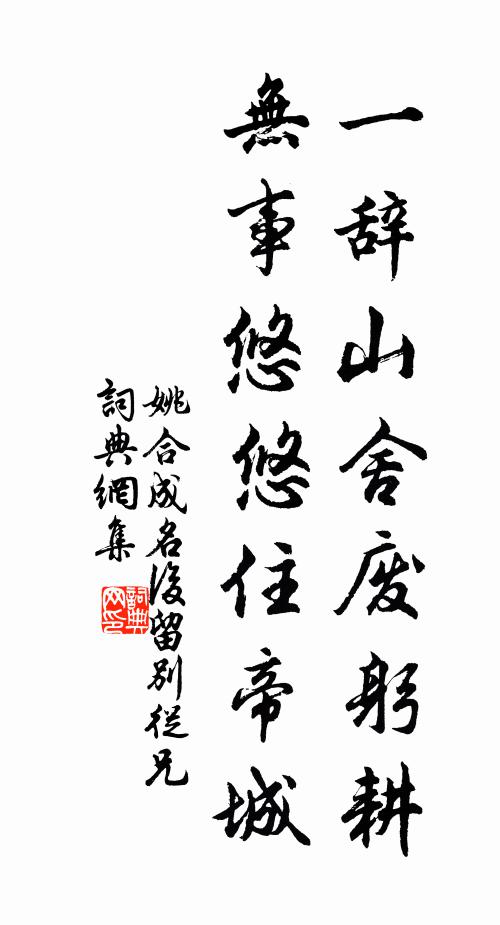 一辞山舍废躬耕
無事悠悠住帝城
姚合成名後留別從兄
詞典網集
詞典
网印